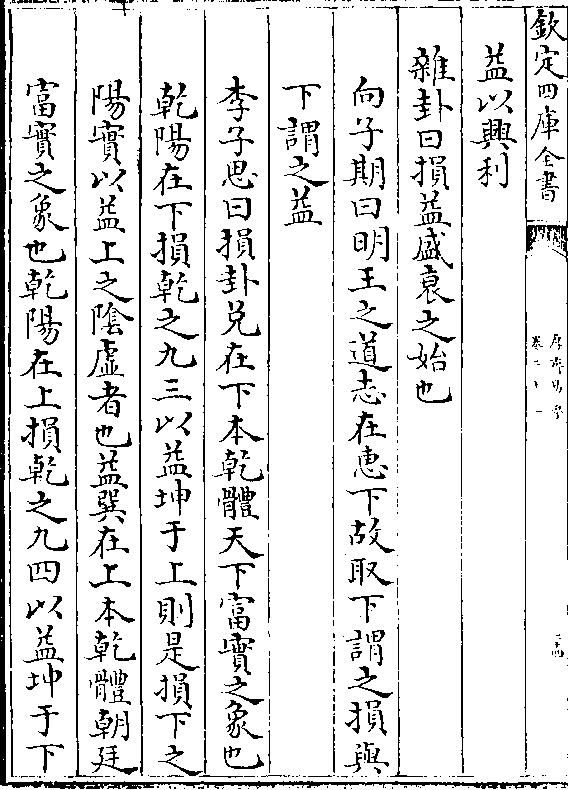 欽定四庫全書
益以興利
雜卦曰損益盛衰之始也
向子期曰明王之道志在惠下故取下謂之損與
下謂之益
李子思曰損卦兑在下本乾體天下富實之象也
乾陽在下損乾之九三以益坤于上則是損下之
陽實以益上之陰虛者也益巽在上本乾體朝廷
富實之象也乾陽在上損乾之九四以益坤于下